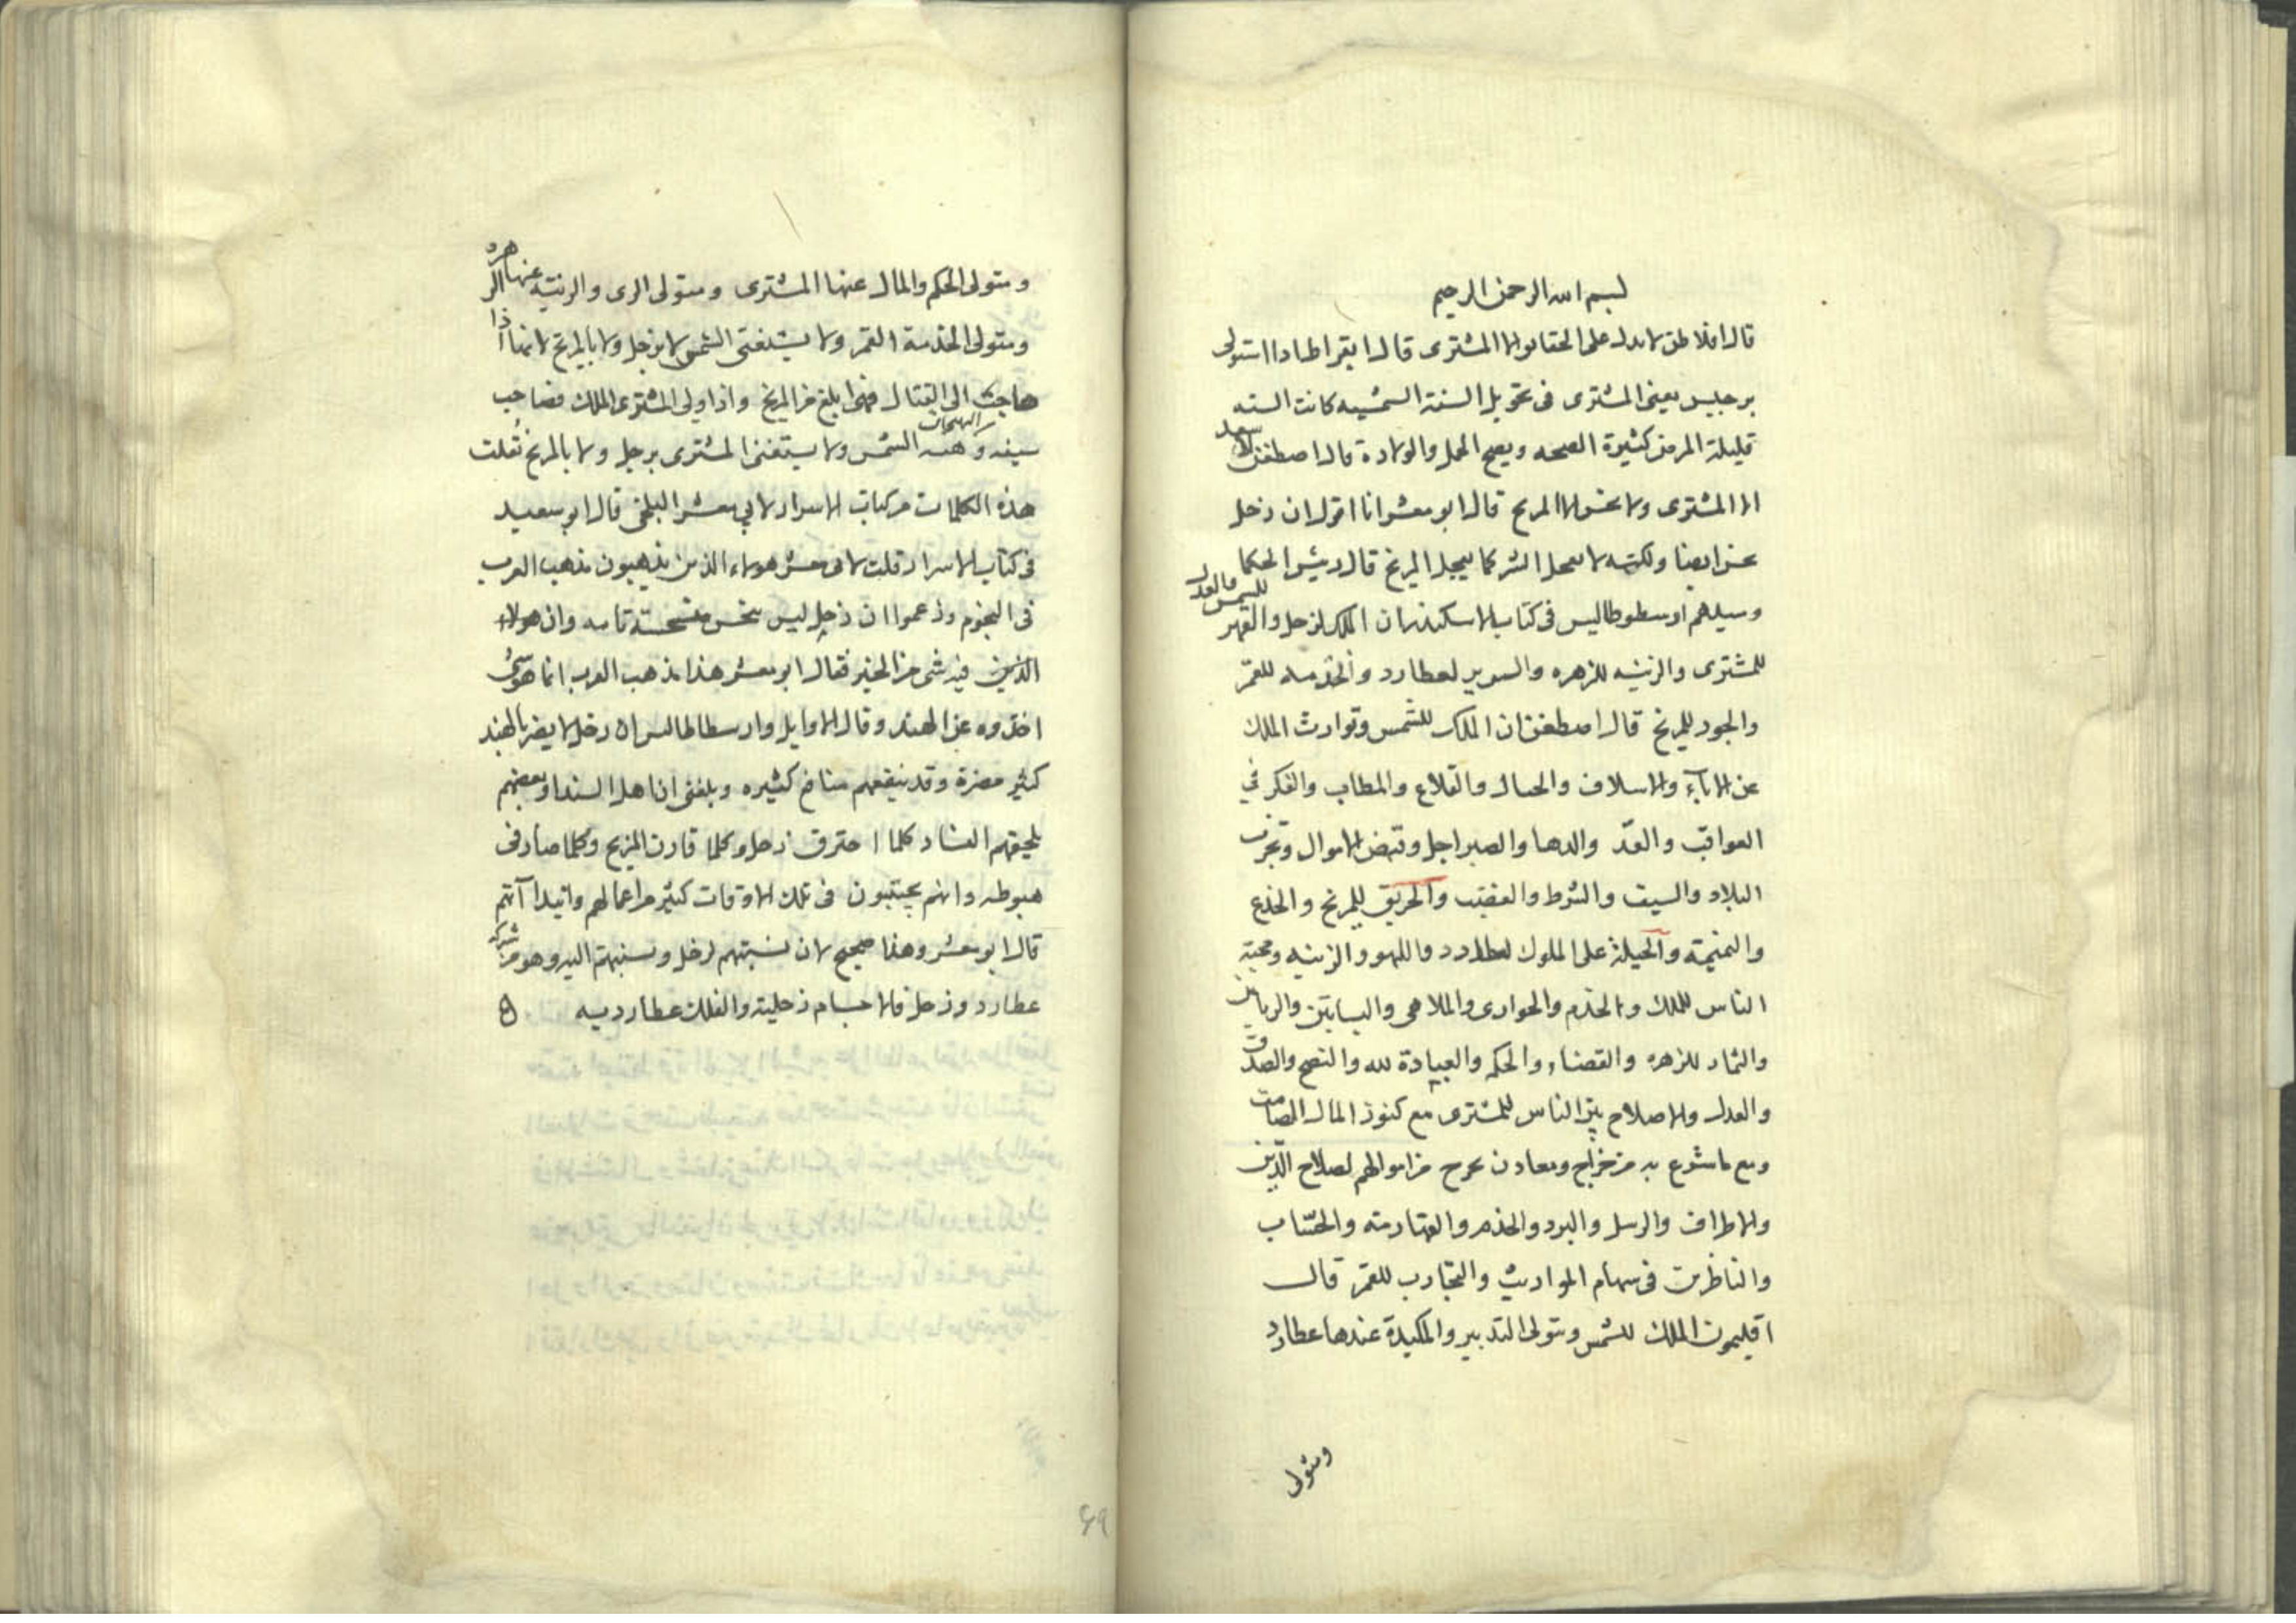 بسم الله الرحمن الرحيم
قال افلاطن لا يدل على الحقايق الا المشترى قال ابقراط اذا استولى
برجيس يعنى المشترى فى تحويل السنة الشمسيه كانت السنه
قليلة المرض كثيرة الصحه ويصح الحمل والولادة قال اصطفن لا سعد
الا المشترى ولا نحس الا المريخ قال ابو معشر انا اقول ان زحل
نحس ايضا ولكنه لا يعجل الشر كما يعجل المريخ قال رئيس الحكما
وسيدهم ارسطوطاليس فى كتاب الاسكندر ان الملك لزحل والقهر للشمس والعدل
للمشترى والزينه للزهره والتدبير لعطارد والخدمه للقمر
والجود للمريخ قال اصطفن ان الملك للشمس وتوارث الملك
عن الاباء والاسلاف والجبال والقلاع والمطالب والفكر فى
العواقب والغدر والدها والصبر لزحل وقبض الاموال وتخرب
البلاد والسيف والشرط والغضب والحريق للمريخ والخدع
والنميمة والحيلة على الملوك لعطارد واللهو والزينه ومحبة
الناس للملك والخدم والجوارى والملاهى والبساتين والرياحين
والثمار للزهره والقضاء والحكم والعبادة لله والنصح والصدق
والعدل والاصلاح بين الناس للمشترى مع كنوز المال الصامت
ومع ما شرع به من خراج ومعادن يخرج من اموالهم لصلاح الدين
والاطراف والرسل والبرد والخدم والقهارمه والحساب
والناظرين فى سهام المواريث والتجارب للقمر قال
اقليمون الملك للشمس ومتولى التدبير والمكيدة عندها عطارد
ومتولى
ومتولى الحكم والمال عنها المشترى ومتولى الرى والزينه عنها الزهره
ومتولى الخدمة القمر ولا يستغنى الشمس لا بزحل ولا بالمريخ لانها اذا
هاجت الى القتال فهى ابلغ من المريخ واذا ولى المشترى الملك فصاحب
سيفه الشمس ولا يستغنى المشترى بزحل ولا بالمريخ نقلت
هذه الكلمات من كتاب الاسرار لابى معشر البلخى قال ابو سعيد
فى كتاب الاسرار قلت لابى معشر هولاء الذين يذهبون مذهب العرب
فى النجوم وزعموا ان زحل ليس بنحس منحسة تامه وان هولاء
الذين فيه شى من الخير فقال ابو معشر هذا مذهب العرب انما هو شئ
اخذوه عن الهند وقال الاوايل وارسطاطاليس ان زحل لا يضر بالهند
كثير مضرة وقد ينفعهم منافع كثيره وبلغنى ان اهل السند او بعضهم
يلحقهم الفساد كلما احترق زحل وكلما قارن المريخ وكلما صار فى
هبوطه وانهم يجتنبون فى تلك الاوقات كثير من اعمالهم وابتداآتهم
قال ابو معشر وهذا صحيح لان نسبتهم لزحل ونسبتهم اليه وهو من شركه
عطارد وزحل فالاجسام زحلية والفلك عطارديه
69